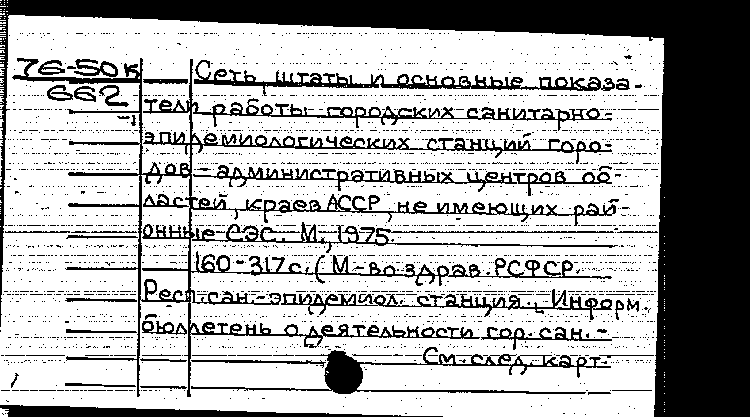 76-50к
662
-1
Сеть, штаты и основные показа-
тели работы городских санитарно-
эпидемиологических станций горо-
дов - административных центров об-
ластей, краев АССР, не имеющих рай-
онные СЭС. М., 1975.
160-317с. (М-во здрав. РСФСР.
Респ. сан.-эпидемиол. станция. Информ.
бюллетень о деятельности гор. сан.-
См. след. карт.